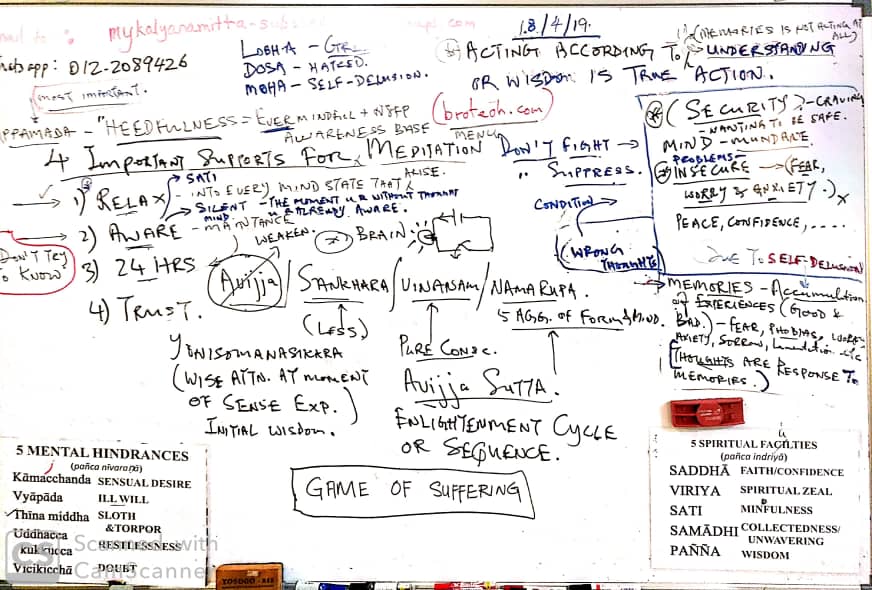 mail to : mykalyanamitta-
whatsapp: 012-2089426
most important.
LOBHA – GREED.
DOSA – HATRED.
MOHA – SELF-DELUSION.
18/4/19.
ACTING ACCORDING TO UNDERSTANDING
(MEMORIES IS NOT ACTING AT ALL)
OR WISDOM IS TRUE ACTION.
(brotech.com)
MENU
APPAMADA – "HEEDFULNESS = EVER MINDFUL +
AWARENESS BASE
4 IMPORTANT SUPPORTS FOR MEDITATION
→ 1) RELAX
SATI
– INTO EVERY MIND STATE THAT ARISE.
SILENT MIND. – THE MOMENT U R WITHOUT THOUGHT
U R ALREADY AWARE.
→ 2) AWARE – MAINTANCE
WEAKEN.
BRAIN.
DON'T TRY TO KNOW
3) 24 HRS
4) TRUST.
Avijja / SANKHARA / VINANAM / NAMARUPA.
(LESS)
5 AGG. OF FORM & MIND.
YONISOMANASIKARA
(WISE ATTN. AT MOMENT
OF SENSE EXP.)
INITIAL WISDOM.
PURE CONSC.
AVIJJA SUTTA.
ENLIGHTENMENT CYCLE
OR SEQUENCE.
GAME OF SUFFERING
DON'T FIGHT →
" SUPPRESS.
CONDITION
(WRONG THOUGHTS)
(SECURITY) – CRAVING
– WANTING TO BE SAFE.
MIND – MUNDANE
PROBLEMS –
INSECURE → (FEAR,
WORRY & ANXIETY.) x
PEACE, CONFIDENCE, .....
DUE TO SELF-DELUSION
→ MEMORIES – Accumulation
of EXPERIENCES (GOOD &
BAD.) – FEAR, PHOBIAS, WORRY
ANXIETY, SORROW, Lamentation etc
[THOUGHTS ARE RESPONSE TO
MEMORIES.)
5 MENTAL HINDRANCES
(pañca nīvaraṇā)
Kāmacchanda SENSUAL DESIRE
Vyāpāda ILL WILL
Thīna middha SLOTH &TORPOR
Uddhacca kukkucca RESTLESSNESS
Vicikicchā DOUBT
5 SPIRITUAL FACILTIES
(pañca indriyā)
SADDHĀ FAITH/CONFIDENCE
VIRIYA SPIRITUAL ZEAL
SATI MINFULNESS
SAMĀDHI COLLECTEDNESS/ UNWAVERING
PAÑÑA WISDOM
CS Scanned with
CamScanner